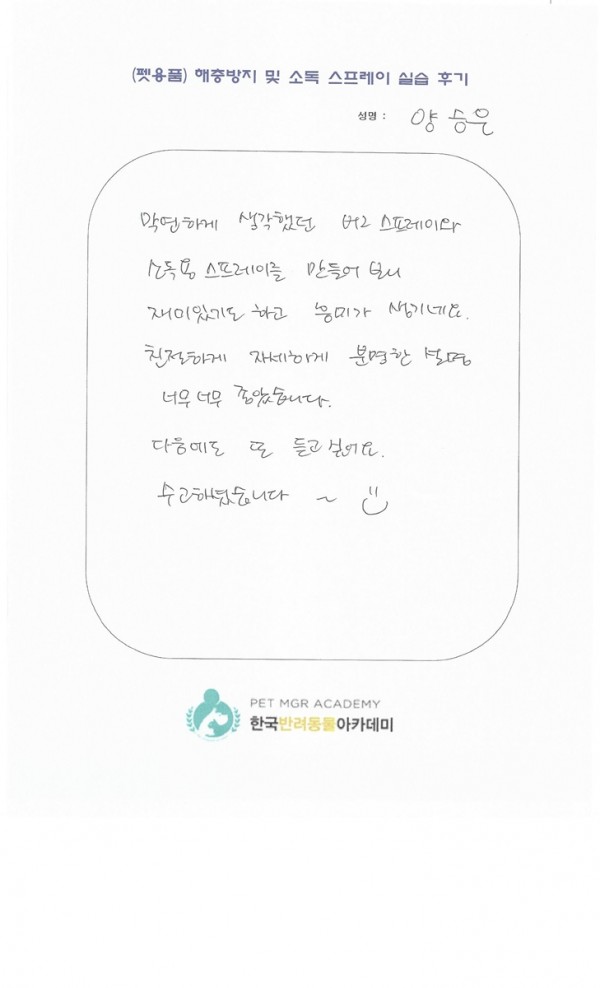 (펫용품) 해충방지 및 소독 스프레이 실습 후기
성명 : 양승은
막연하게 생각했던 버그 스프레이와
소독용 스프레이를 만들어 보니
재미있기도 하고 흥미가 생기네요.
친절하게 자세하게 분명한 설명
너무너무 좋았습니다.
다음에도 또 듣고싶어요.
수고하셨습니다 ~
PET MGR ACADEMY
한국반려동물아카데미